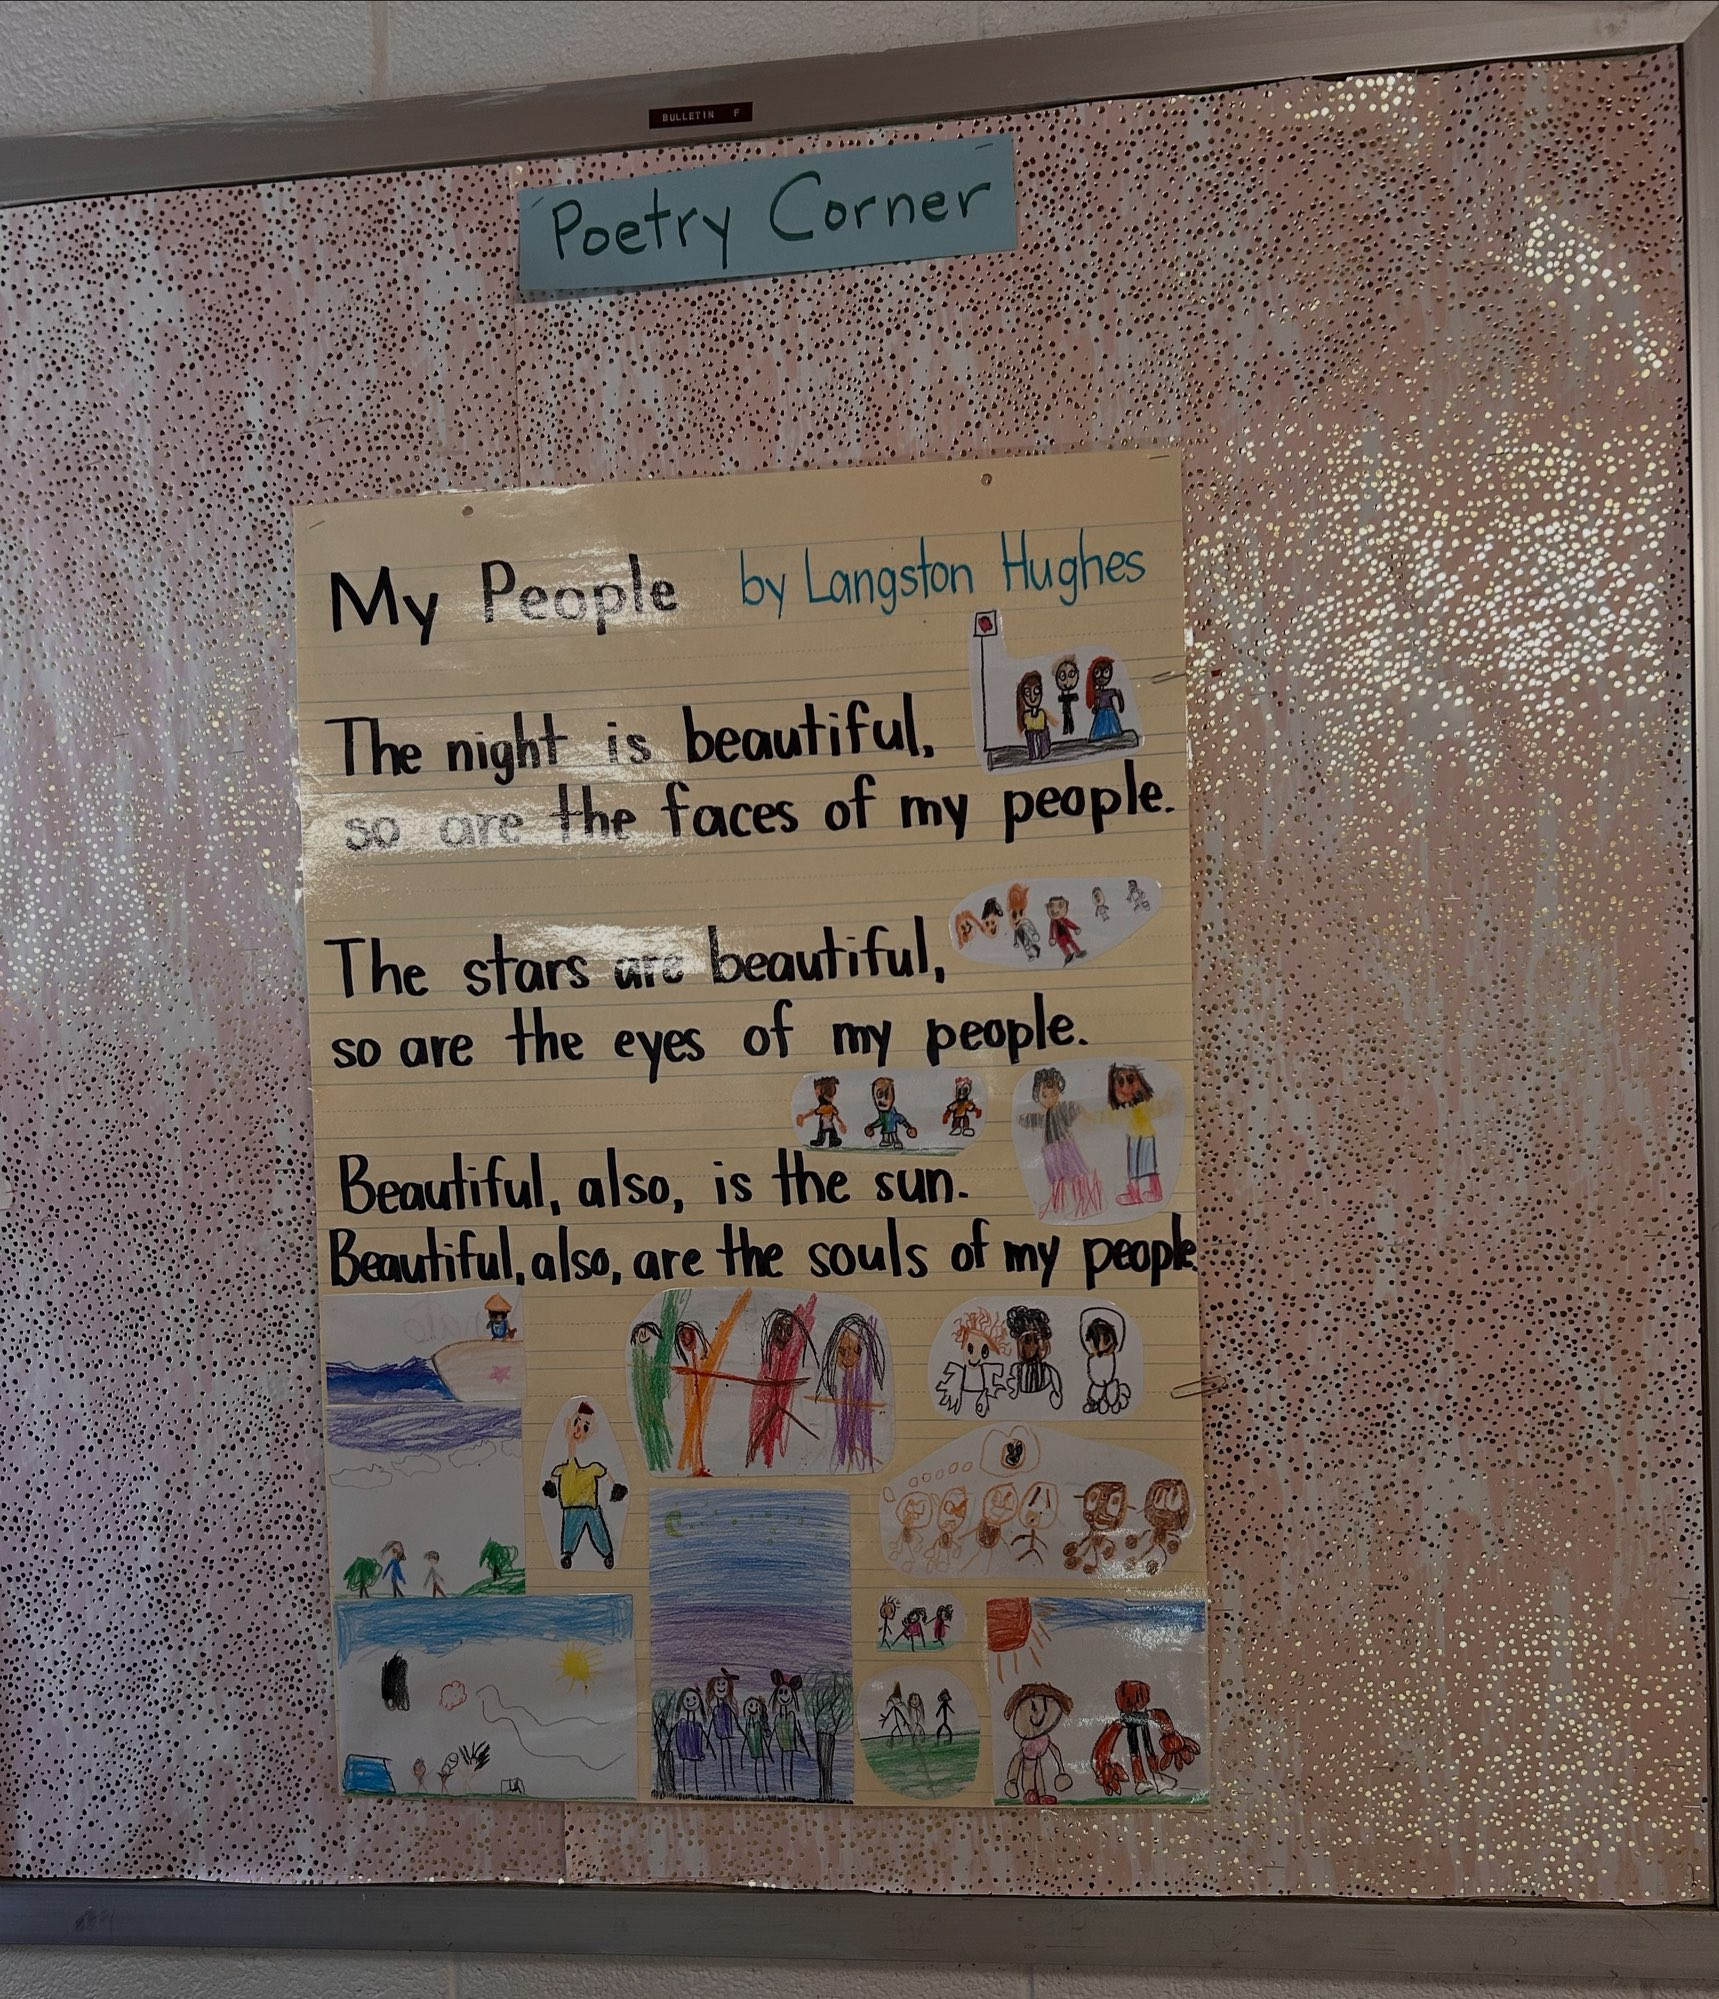 BULLETIN F
Poetry Corner
My People by Langston Hughes
The night is beautiful,
so are the faces of my people.
The stars are beautiful,
so are the eyes of my people.
Beautiful, also, is the sun.
Beautiful, also, are the souls of my people.